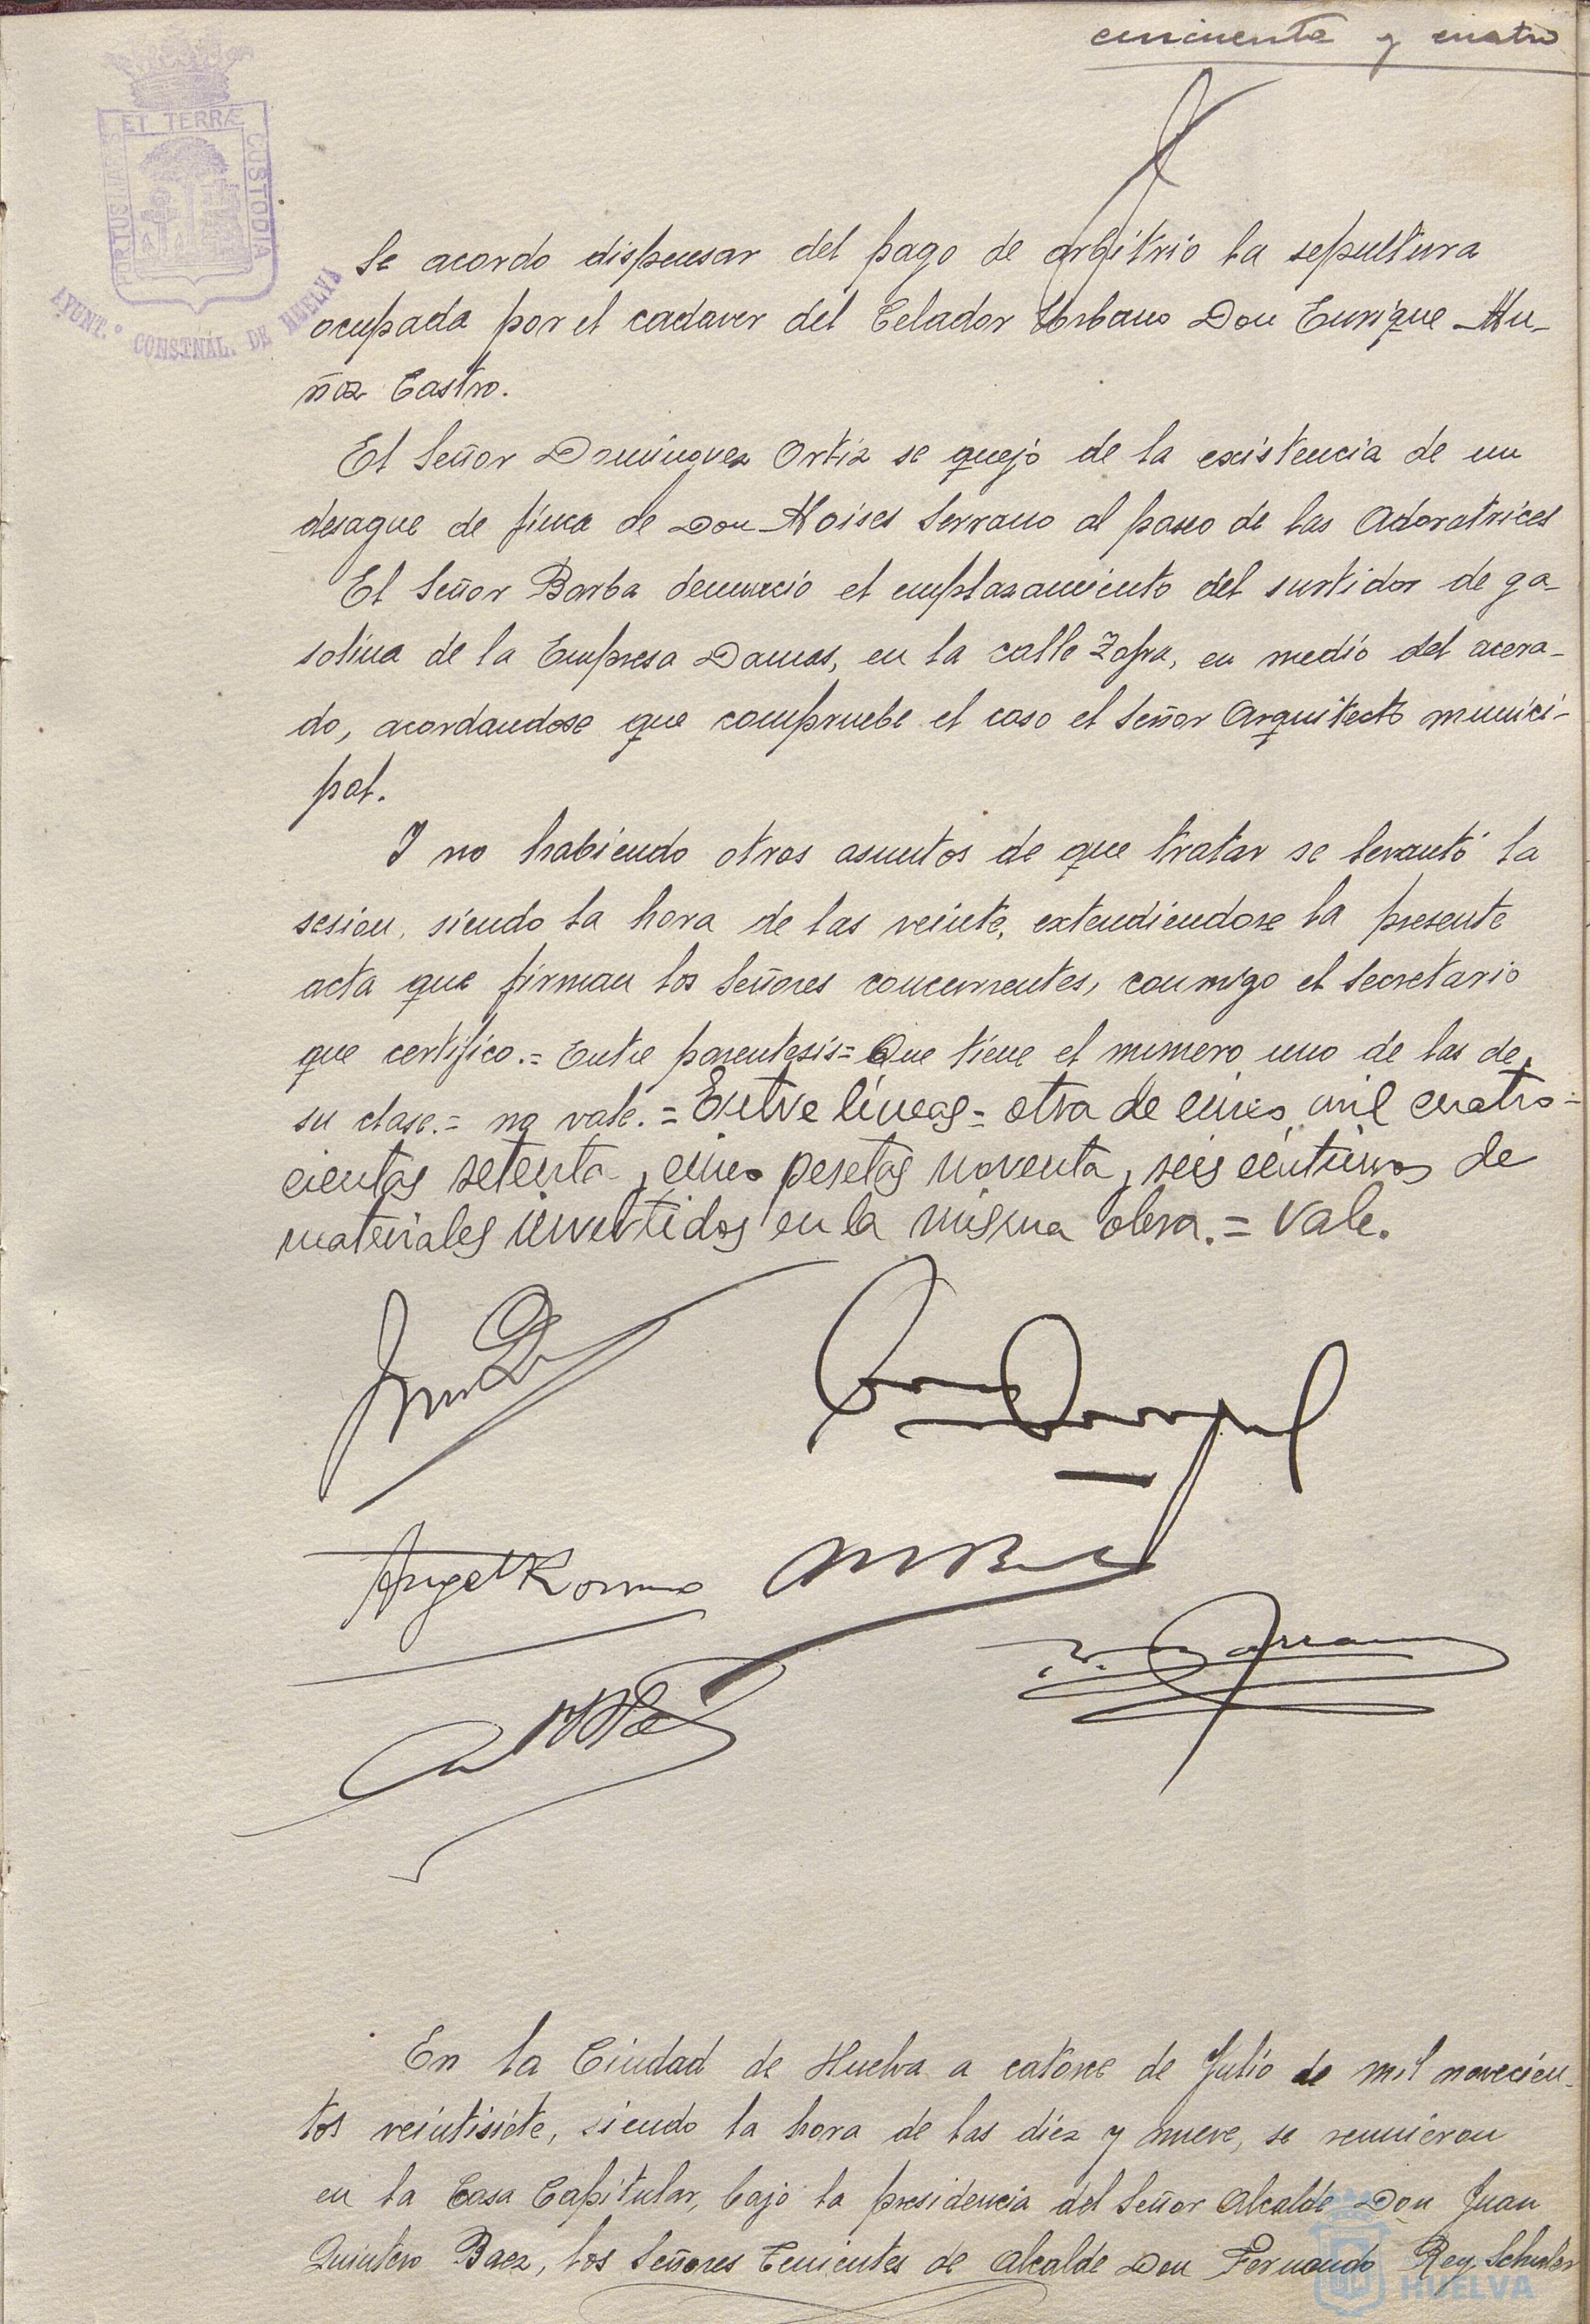 cincuenta y cuatro
PORTUS MARIS ET TERRÆ CUSTODIA
AYUNT.º CONSTNAL. DE HUELVA
Se acordo dispensar del pago de arbitrio la sepultura
ocupada por el cadaver del Celador Urbano Don Enrique Mu-
ñoz Castro.
El Señor Dominguez Ortiz se quejó de la existencia de un
desague de finca de Don Moises Serrano al paseo de las Adoratrices
El Señor Borba denunció el emplazamiento del surtidor de ga-
solina de la Empresa Damas, en la calle Zafra, en medio del acera-
do, acordandose que compruebe el caso el Señor Arquitecto munici-
pal.
Y no habiendo otros asuntos de que tratar se levantó la
sesion, siendo la hora de las veinte, extendiendose la presente
acta que firman los Señores concurrentes, conmigo el Secretario
que certifico.= Entre parentesis= Que tiene el numero uno de las de
su clase.= no vale.= Entre líneas= otra de cinco mil cuatro-
cientas setenta y cinco pesetas noventa y seis céntimos de
materiales invertidos en la misma obra.= Vale.
Angel Romero
En la Ciudad de Huelva a catorce de Julio de mil novecien-
tos veintisiete, siendo la hora de las diez y nueve, se reunieron
en la Casa Capitular, bajo la presidencia del Señor Alcalde Don Juan
Quintero Baez, los Señores Tenientes de Alcalde Don Fernando Rey Schuler
HUELVA